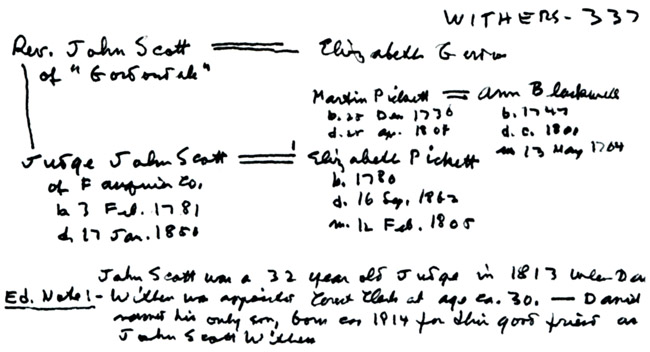 WITHERS - 337
Rev. John Scott Elizabeth
of "Gordonsdale"
Martin Pickett = Ann Blackwell
b. 25 Dec 1736 b. 1747
d. ap. 180 d. c. 180
m 13 May 1764
Judge John Scott Elizabeth Pickett
of Fauquier Co. b. 1780
b. 3 Feb. 1781 d. 16 Sep. 1863
d. 17 Jan. 1850 m. 12 Feb. 1805
John Scott was a 32 year old Judge in 1813 when Dan
Ed. Note:- Withers was appointed Court Clerk at age ca. 30. — Daniel
named his only son, born ca 1814 for this good friend as
John Scott Withers